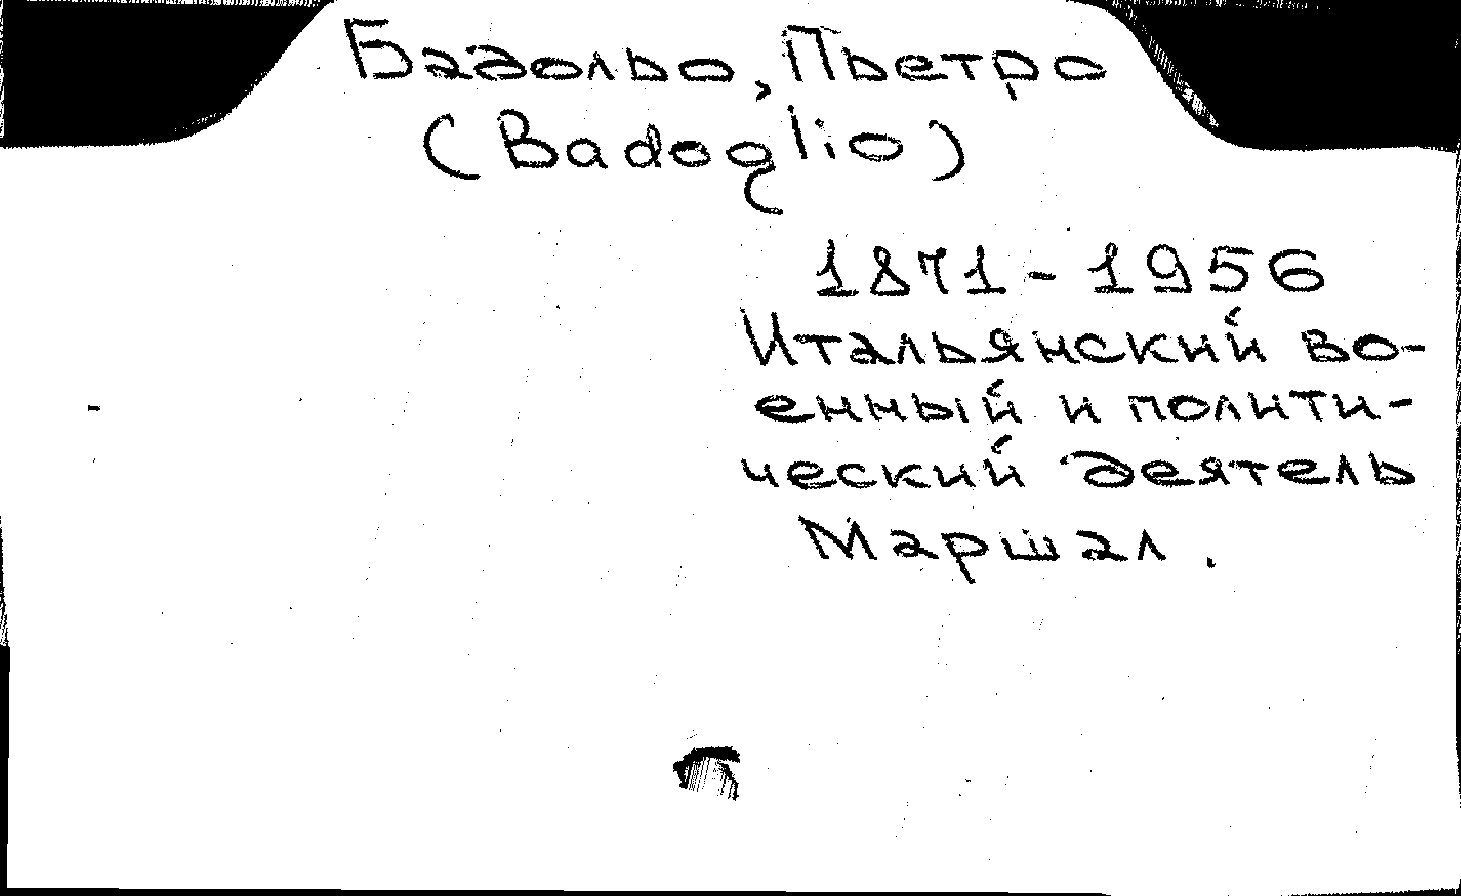 Бадольо, Пьетро
(Badoglio)
1871-1956
Итальянский во-
енный и полити-
ческий деятель
Маршал.